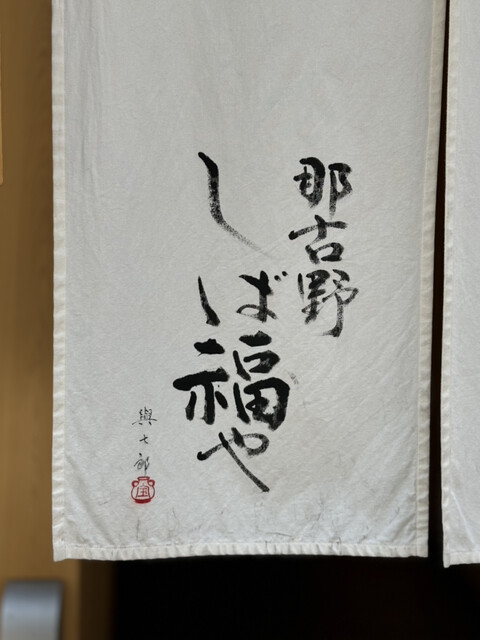 那古野
しば福や
與七郎